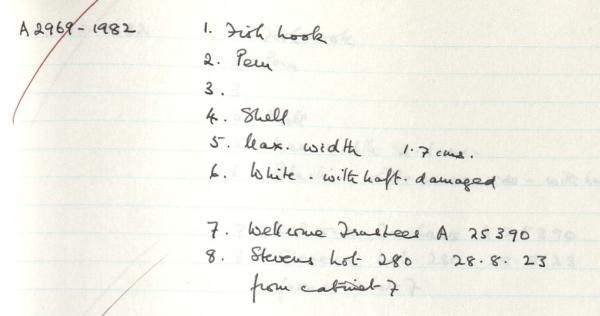 A2969-1982 1. Fish hook
2. Peru
3.
4. Shell
5. Max. width 1.7 cms.
6. White. with haft. damaged
7. Wellcome Trustees A 25390
8. Stevens Lot 280 28.8.23
from cabinet 7